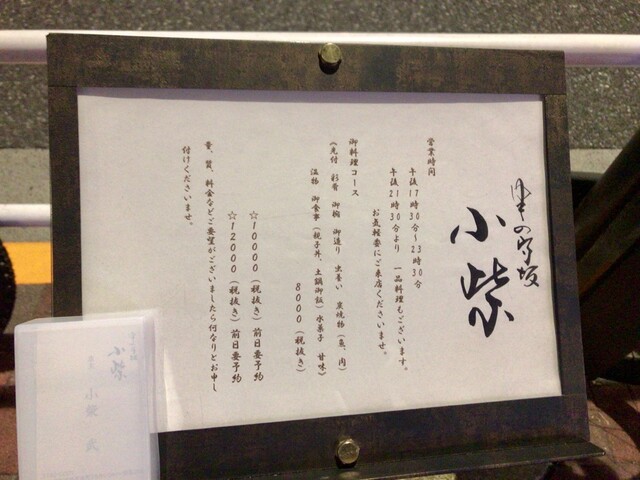 津の守坂
小柴
営業時間
午後17時30分〜23時30分
午後21時30分より 一品料理もございます。
お気軽にご来店くださいませ。
御料理コース
(先付 彩肴 御椀 御造り 出養い 炭焼物(魚、肉)
温物 御食事(親子丼、土鍋御飯)水菓子 甘味)
8000(税抜き)
☆10000(税抜き)前日要予約
☆12000(税抜き)前日要予約
量、質、料金などご要望がございましたら何なりとお申し
付けくださいませ。
小柴
小柴